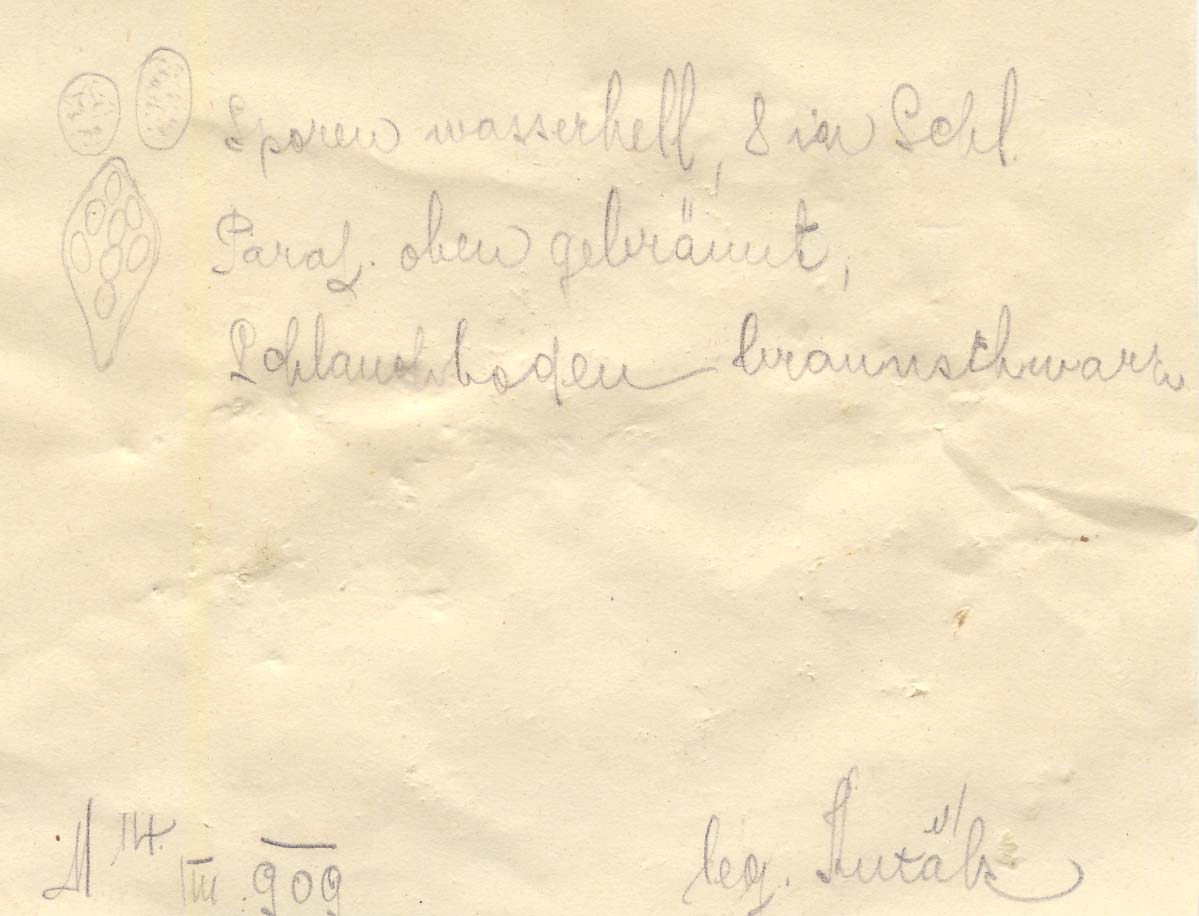 Sporen wasserhell, 8 in Schl.
Paraf. oben gebräunt,
Schlauchboden braunschwarz
14. III. 909
leg. Kuták